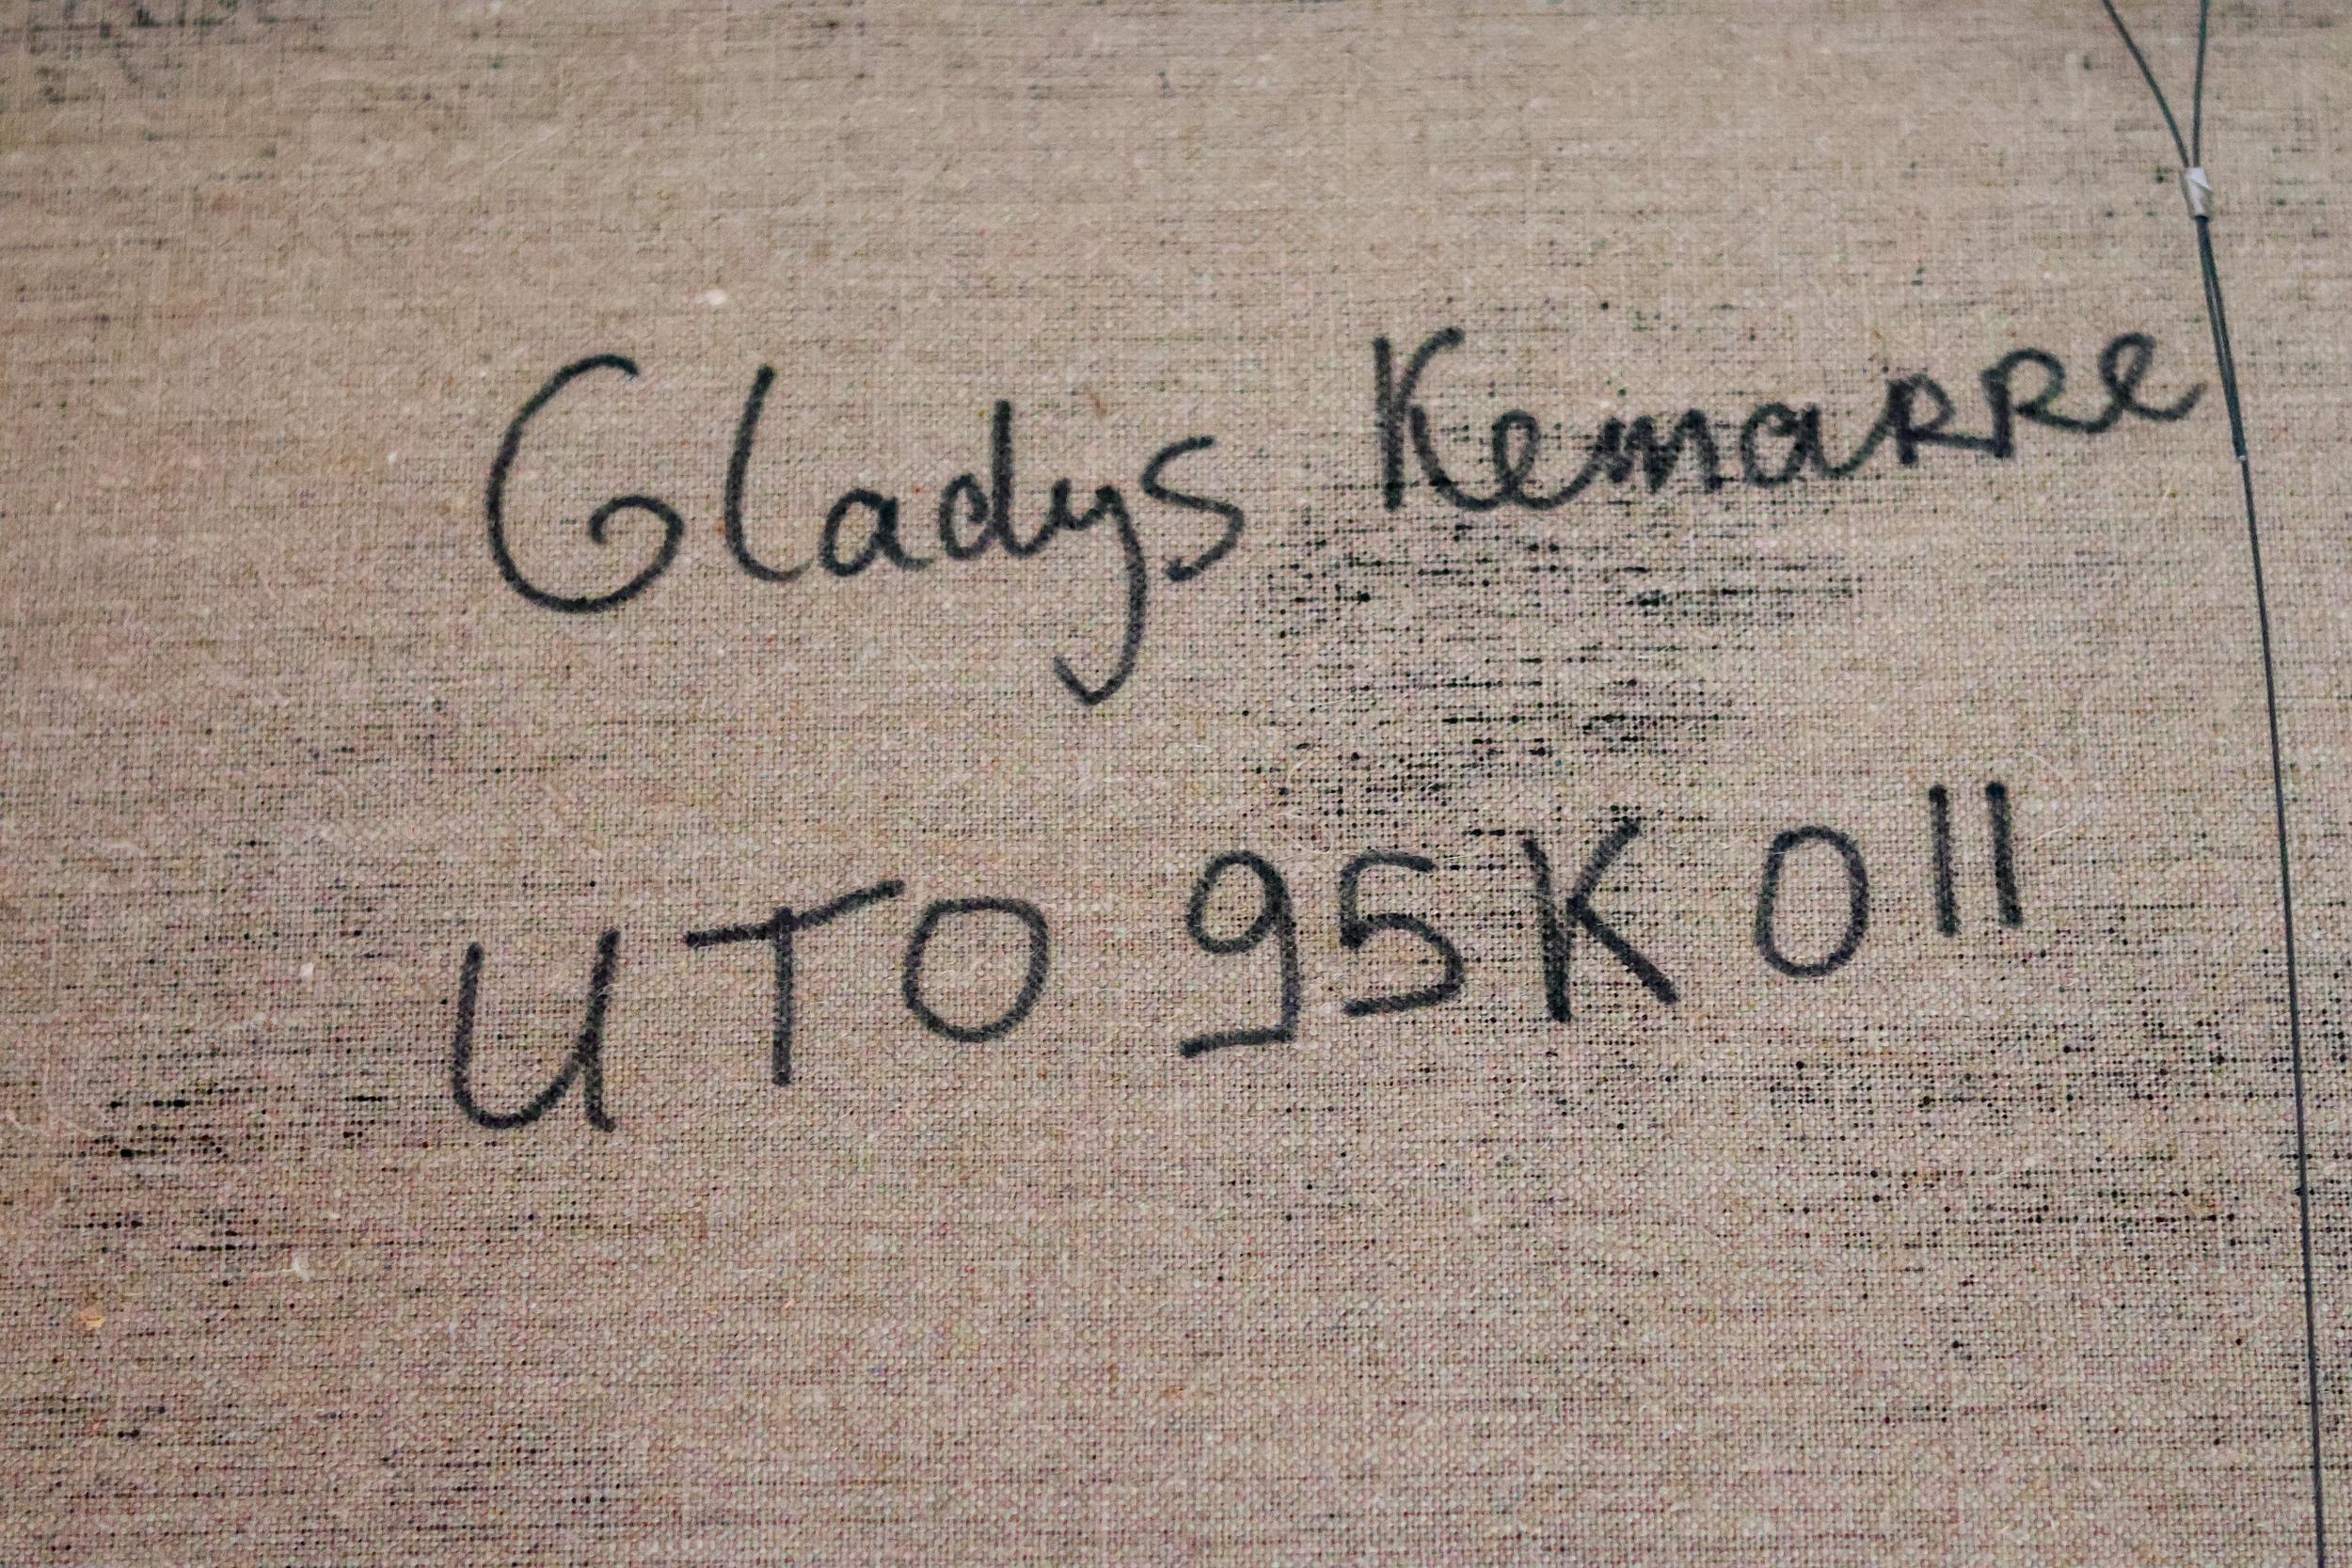 Gladys Kemarre
UTO 95K 011